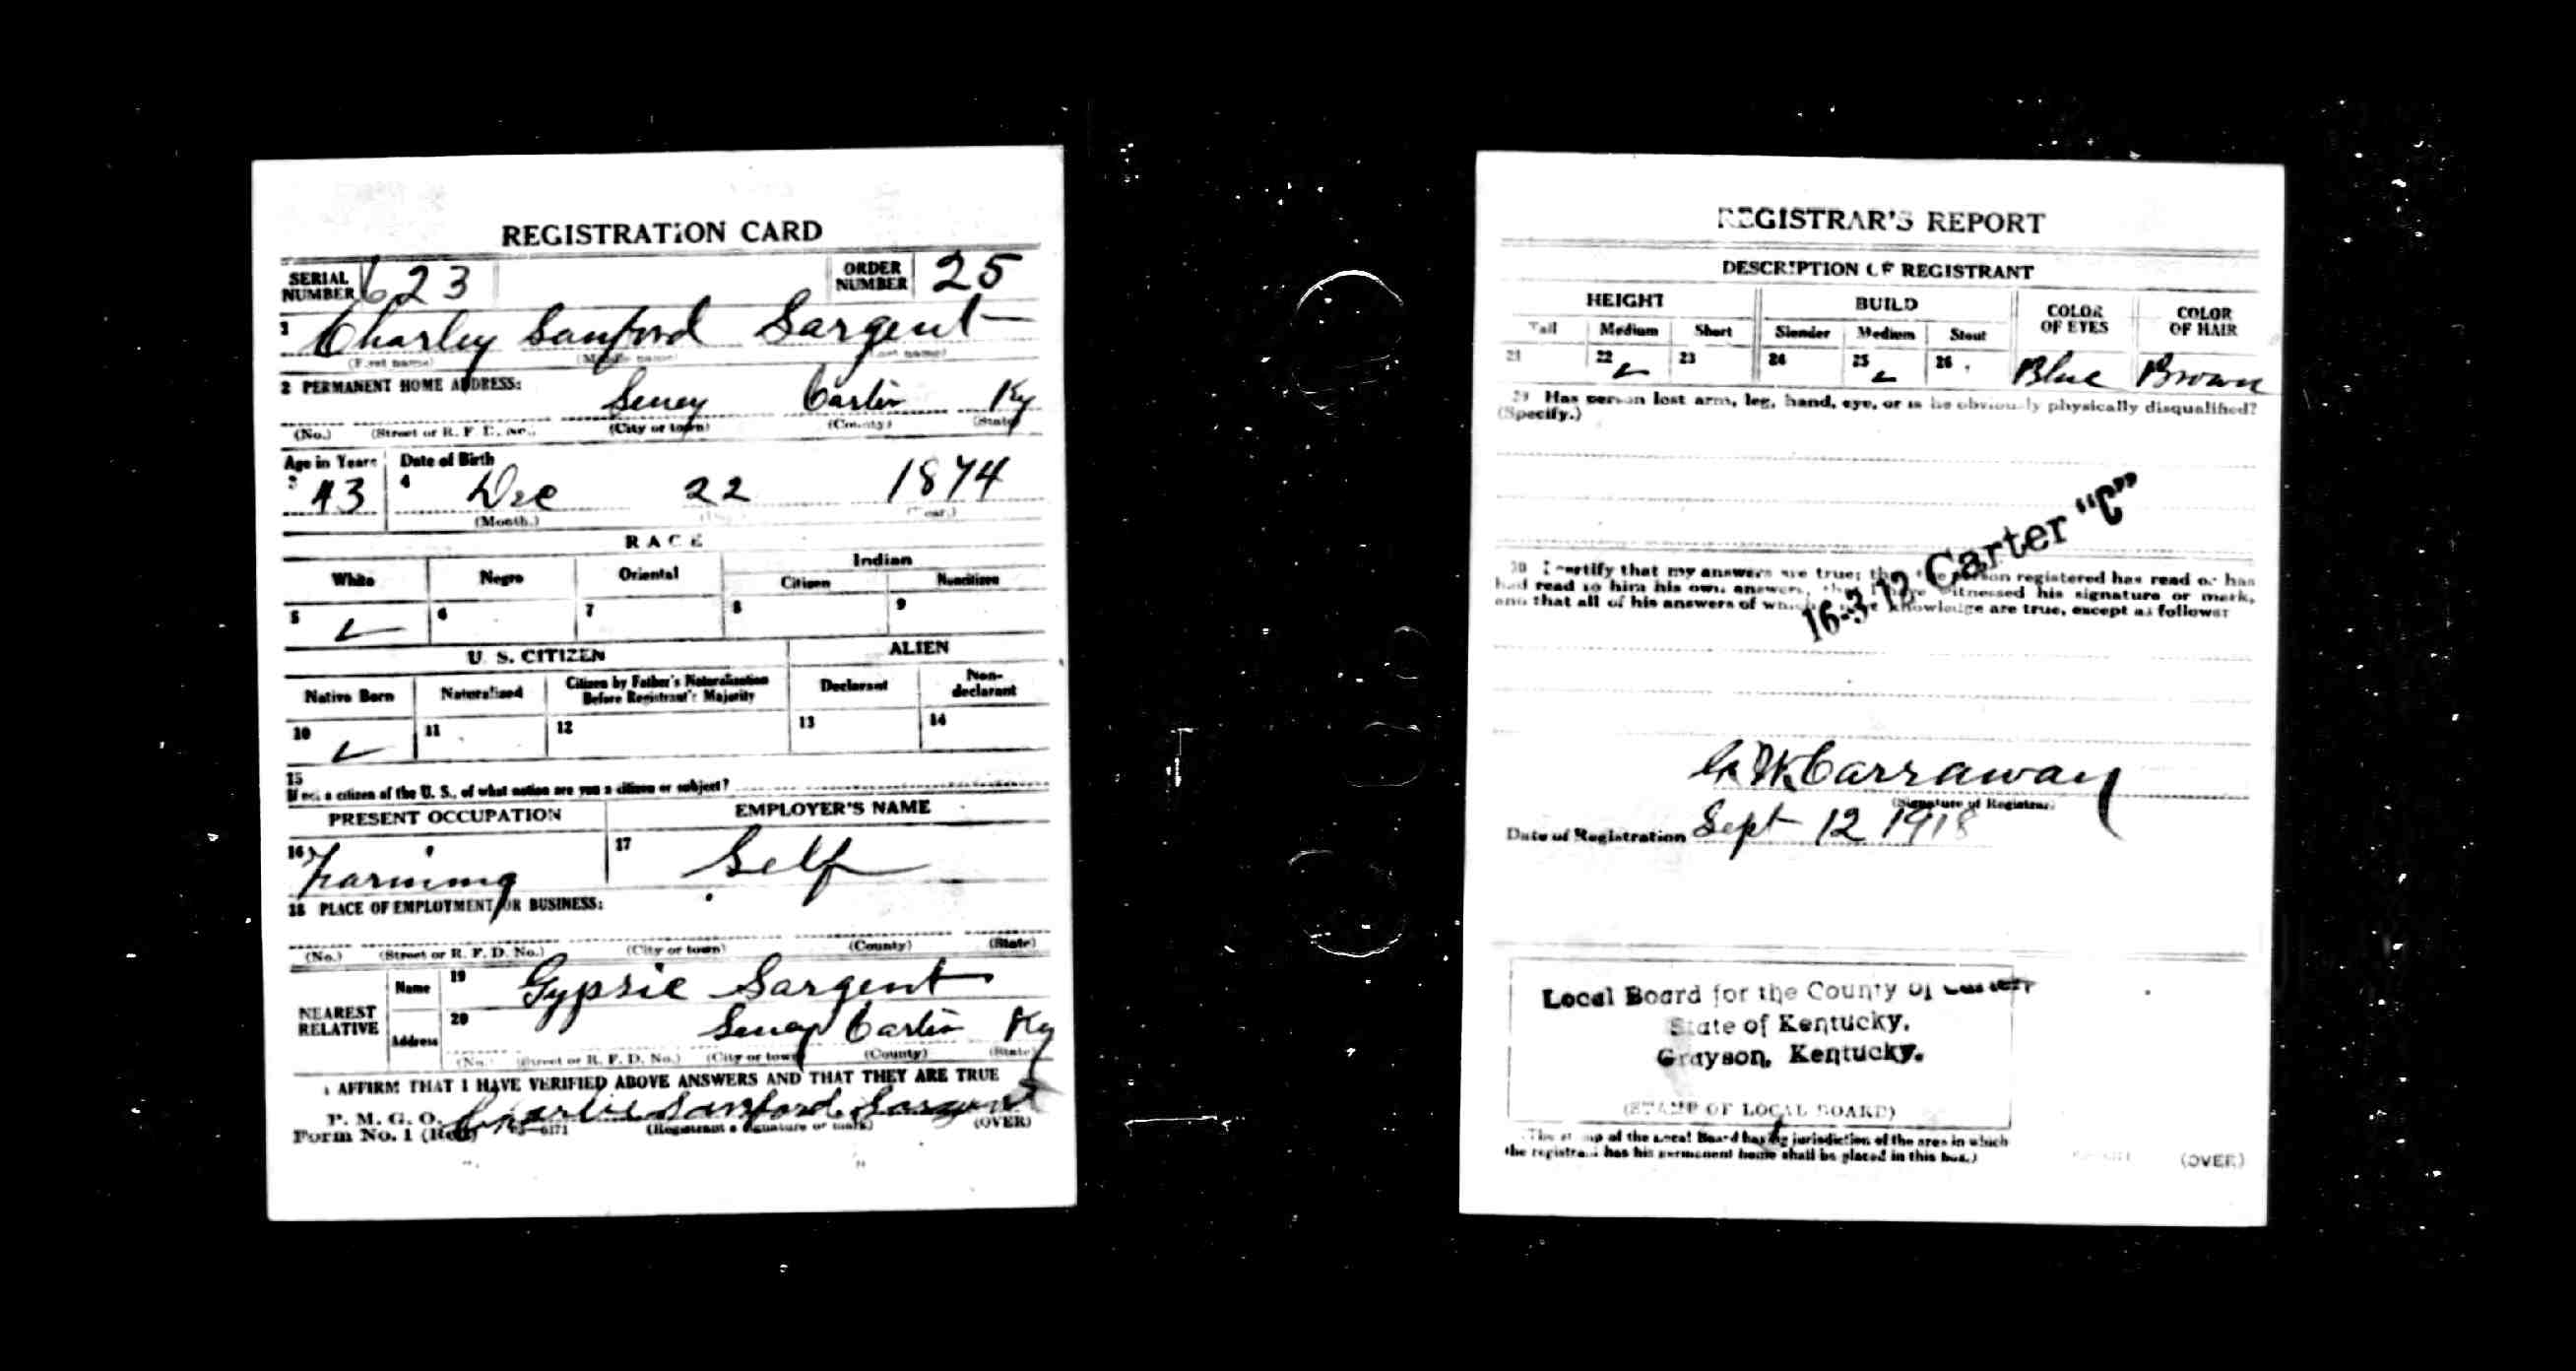 REGISTRATION CARD
SERIAL NUMBER 623 ORDER NUMBER 25
1 Charley Sanford Sargent
(First name) (Middle name) (Last name)
2 PERMANENT HOME ADDRESS:
Carter Ky
(No.) (Street or R. F. D. No.) (City or town) (County) (State)
Age in Years Date of Birth
3 43 4 Dec 22 1874
(Month.) (Day.) (Year.)
RACE
White Negro Oriental Indian
Citizen Noncitizen
5 ✓ 6 7 8 9
U. S. CITIZEN ALIEN
Native Born Naturalized Citizen by Father's Naturalization Before Registrant's Majority Declarant Non-declarant
10 ✓ 11 12 13 14
15
If not a citizen of the U. S., of what nation are you a citizen or subject?
PRESENT OCCUPATION EMPLOYER'S NAME
16 Farming 17 Self
18 PLACE OF EMPLOYMENT OR BUSINESS:
(No.) (Street or R. F. D. No.) (City or town) (County) (State)
NEAREST RELATIVE Name 19 Gypsie Sargent
Address 20 Carter Ky
(No.) (Street or R. F. D. No.) (City or town) (County) (State)
I AFFIRM THAT I HAVE VERIFIED ABOVE ANSWERS AND THAT THEY ARE TRUE
P. M. G. O.
Form No. 1 (Red) Charlie Sanford Sargent
(Registrant's signature or mark) (OVER)
REGISTRAR'S REPORT
DESCRIPTION OF REGISTRANT
HEIGHT BUILD COLOR OF EYES COLOR OF HAIR
Tall Medium Short Slender Medium Stout
21 22 ✓ 23 24 25 ✓ 26 Blue Brown
29 Has person lost arm, leg, hand, eye, or is he obviously physically disqualified?
(Specify.)
16-3-12 Carter "C"
30 I certify that my answers are true; that the person registered has read or has
had read to him his own answers, that I have witnessed his signature or mark,
and that all of his answers of which I have knowledge are true, except as follows:
Carraway
(Signature of Registrar)
Date of Registration Sept 12 1918
Local Board for the County of Carter
State of Kentucky.
Grayson, Kentucky.
(STAMP OF LOCAL BOARD)
(The stamp of the Local Board having jurisdiction of the area in which
the registrant has his permanent home shall be placed in this box.)
(OVER)